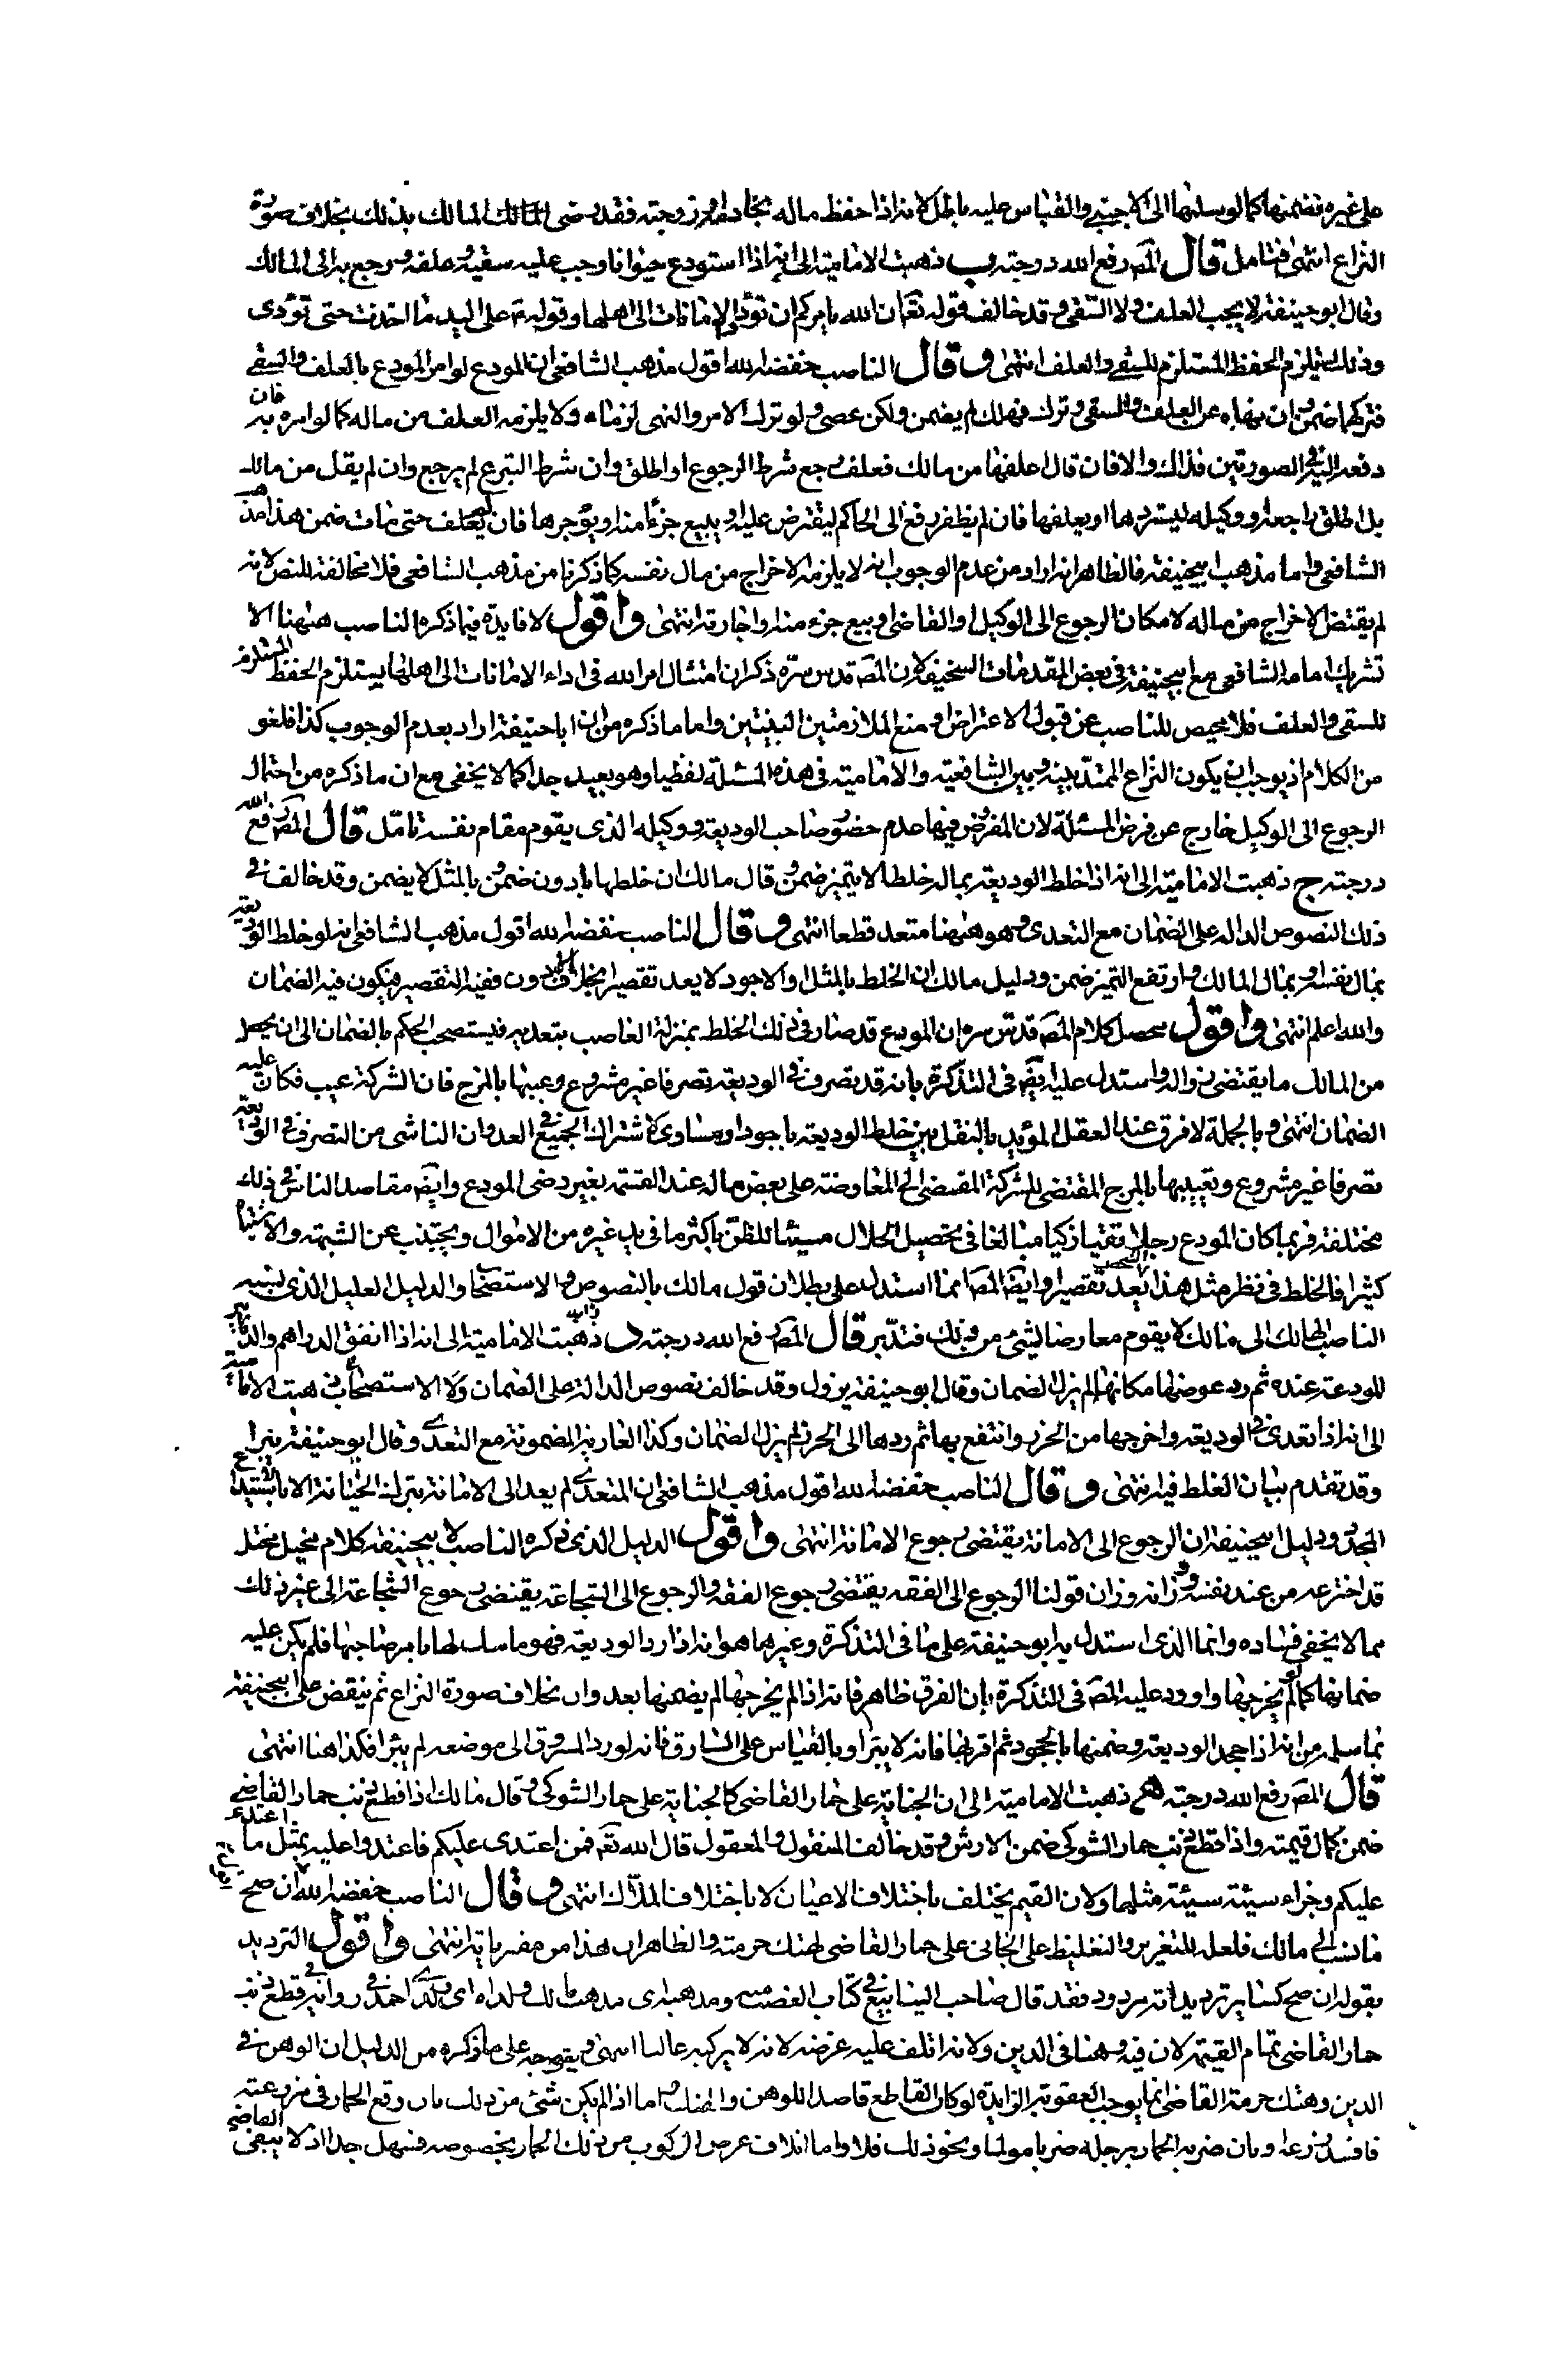 على غيره تضمنها كما لو سلمها الى الاجنبي والقياس عليه باطل لانه اذا حفظ ماله بخادمه او زوجته فقد رضى المالك بذلك بخلاف صورة
النزاع انتهى فتامل قال المص رفع الله درجته ب ذهبت الامامية الى انه اذا استودع حيوانا وجب عليه سقيه وعلفه ويرجع به الى المالك
وقال ابو حنيفة لا يجب العلف ولا السقى وقد خالف قوله تعم ان الله يامركم ان تؤدوا الامانات الى اهلها وقوله ص على اليد ما اخذت حتى تؤدى
وذلك يستلزم الحفظ المستلزم للسقى والعلف انتهى وقال الناصب خفضه الله اقول مذهب الشافعى ان المودع لو امر المودع بالعلف والسقى
فتركهما ضمن وان نهاه عن العلف والسقى وترك فهلك لم يضمن ولكن عصى ولو ترك الامر والنهى لزماه ولا يلزمه العلف من ماله كما لو امره به فان
دفعه اليه فى الصورتين فذاك والا فان قال اعلفها من مالك فعلف رجع شرط الرجوع او اطلق وان شرط التبرع لم يرجع وان لم يقل من مالك
بل اطلق راجعه او وكيله ليستردها او يعلفها فان لم يظفر رفع الى الحاكم ليقترض عليه او يبيع جزءا منه او يؤجرها فان لم يعلف حتى مات ضمن هذا مذهب
الشافعى واما مذهب ابيحنيفة فالظاهر انه اراد من عدم الوجوب انه لا يلزمه الاخراج من مال نفسه كما ذكرنا من مذهب الشافعى فلا مخالفة للنص لانه
لم يقتض الاخراج من ماله لامكان الرجوع الى الوكيل او القاضى او بيع جزء منه او اجارته انتهى واقول لا فايدة فيما ذكره الناصب ههنا الا
تشريك امامه الشافعى مع ابيحنيفة فى بعض المقدمات السخيفة لان المص قدس سره ذكر ان امتثال امر الله فى اداء الامانات الى اهلها يستلزم الحفظ المستلزم
للسقى والعلف فلا محيص للناصب عن قبول الاعتراض او منع الملازمتين البينتين واما ما ذكره من ان ابا حنيفة اراد بعدم الوجوب كذا فلغو
من الكلام اذ يوجب ان يكون النزاع الممتد بينه وبين الشافعية والامامية فى هذه المسئلة لفظيا وهو بعيد جدا كما لا يخفى مع ان ما ذكره من احتمال
الرجوع الى الوكيل خارج عن فرض المسئلة لان المفروض فيها عدم حضور صاحب الوديعة ووكيله الذى يقوم مقام نفسه تامل قال المص رفع الله
درجته ج ذهبت الامامية الى انه اذا خلط الوديعة بماله خلطا لا يتميز ضمن وقال مالك ان خلطها بادون ضمن وبالمثل لا يضمن وقد خالف فى
ذلك النصوص الدالة على الضمان مع التعدى وهو ههنا متعد قطعا انتهى وقال الناصب خفضه الله اقول مذهب الشافعى انه لو خلط الوديعة
بمال نفسه او بمال المالك وارتفع التميز ضمن ودليل مالك ان الخلط بالمثل والاجود لا يعد تقصيرا بخلاف الادون ففيه التقصير فيكون فيه الضمان
والله اعلم انتهى واقول محصل كلام المص قدس سره ان المودع قد صار فى ذلك الخلط بمنزلة الغاصب بتعديه فيستصحب الحكم بالضمان الى ان يحصل
من المالك ما يقتضى زواله واستدل عليه ايضا فى التذكرة بانه قد تصرف فى الوديعة تصرفا غير مشروع وعيبها بالمزج فان الشركة عيب فكان عليه
الضمان انتهى وبالجملة لا فرق عند العقل المؤيد بالنقل بين خلط الوديعة باجود او مساوى لاشتراك الجميع فى العدوان الناشى من التصرف فى الوديعة
تصرفا غير مشروع وتعييبها بالمزج المقتضى للشركة المقتضى الى المعاوضة على بعض ماله عند القسمة بغير رضى المودع وايضا مقاصد الناس فى ذلك
مختلفة فربما كان المودع رجلا تقيا زكيا مبالغا فى تحصيل الحلال مسيئا للظن باكثر ما فى يد غيره من الاموال ويجتنب عن الشبهة والاشتباه
كثيرا فالخلط فى نظر مثل هذا الشخص يعد تقصيرا وايضا المص انما استدل على بطلان قول مالك بالنصوص والاستصحاب والدليل العليل الذى نسبه
الناصب الهالك الى مالك لا يقوم معارضا لشئ من ذلك فتدبر قال المص رفع الله درجته د ذهبت الامامية الى انه اذا انفق الدراهم والدنانير
المودعة عنده ثم رد عوضها مكانها لم يزل الضمان وقال ابو حنيفة يزول وقد خالف نصوص الدالة على الضمان والاستصحاب ذهبت الامامية
الى انه اذا تعدى فى الوديعة واخرجها من الحرز وانتفع بها ثم ردها الى الحرز لم يزل الضمان وكذا العارية المضمونة مع التعدى وقال ابو حنيفة يبرأ
وقد تقدم بيان الغلط فيه انتهى وقال الناصب خفضه الله اقول مذهب الشافعى ان المتعدى لم يعد الى الامانة بترك الخيانة الا باستيداع
المجدد ودليل ابيحنيفة ان الرجوع الى الامانة يقتضى رجوع الامانة انتهى واقول الدليل الذى ذكره الناصب لابيحنيفة كلام مخيل مختل
قد اخترعه من عند نفسه ووزانه وزان قولنا الرجوع الى الفقه يقتضى رجوع الفقه والرجوع الى الشجاعة يقتضى رجوع الشجاعة الى غير ذلك
مما لا يخفى فساده وانما الذى استدل به ابو حنيفة على ما فى التذكرة وغيرها هو انه اذا رد الوديعة فهو ماسك لها بامر صاحبها فلم يكن عليه
ضمانها كما لو لم يخرجها واورد عليه المص فى التذكرة بان الفرق ظاهر فانه اذا لم يخرجها لم يضمنها بعدوان بخلاف صورة النزاع ثم ينقض على ابيحنيفة
بما سلمه من انه اذا جحد الوديعة وضمنها بالجحود ثم اقر بها فانه لا يبرأ وبالقياس على السارق فانه لو رد المسروق الى موضعه لم يبرأ فكذا هنا انتهى
قال المص رفع الله درجته ه ذهبت الامامية الى ان الجناية على حمار القاضى كالجناية على حمار الشوكى وقال مالك اذا قطع ذنب حمار القاضى
ضمن كمال قيمته واذا قطع ذنب حمار الشوكى ضمن الارش وقد خالف المنقول والمعقول قال الله تعم فمن اعتدى عليكم فاعتدوا عليه بمثل ما اعتدى
عليكم وجزاء سيئة سيئة مثلها ولان القيم يختلف باختلاف الاعيان لا باختلاف الملاك انتهى وقال الناصب خفضه الله ان صح
ما نسب الى مالك فلعله للتغرير والتغليظ على الجانى على حمار القاضى لهتك حرمته والظاهر ان هذا من مفترياته انتهى واقول الترديد
بقوله ان صح كساير ترديداته مردود فقد قال صاحب الينابيع فى كتاب الغصب ومذهب مالك واحمد فى رواية فى قطع ذنب
حمار القاضى تمام القيمة لان فيه وهنا فى الدين ولانه اتلف عليه غرضه لانه لا يركبه غالبا انتهى ويتوجه على ما ذكره من الدليل ان الوهن فى
الدين وهتك حرمة القاضى انما يوجب العقوبة الزايدة لو كان القاطع قاصدا للوهن والهتك اما اذا لم يكن شئ من ذلك بان وقع الحمار فى مزرعته
فافسد زرعه او بان ضربه الحمار برجله ضربا مولما ونحو ذلك فلا واما اتلاف غرض الركوب من ذلك الحمار بخصوصه فسهل جدا اذ لا يبقى القاضى